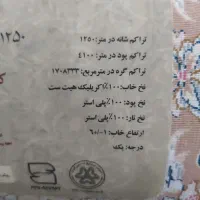 ۱۲۵۰
تراکم شانه در متر: ۱۲۵۰
تراکم پود در متر: ۴۱۰۰
تراکم گره در مترمربع: ۱۷۰۸۳۳۳
نخ خاب: ۱۰۰٪ اکریلیک هیت ست
نخ پود: ۱۰۰٪ پلی استر
نخ تار: ۱۰۰٪ پلی استر
ارتفاع خاب: ۶±۰/۱
درجه: یک